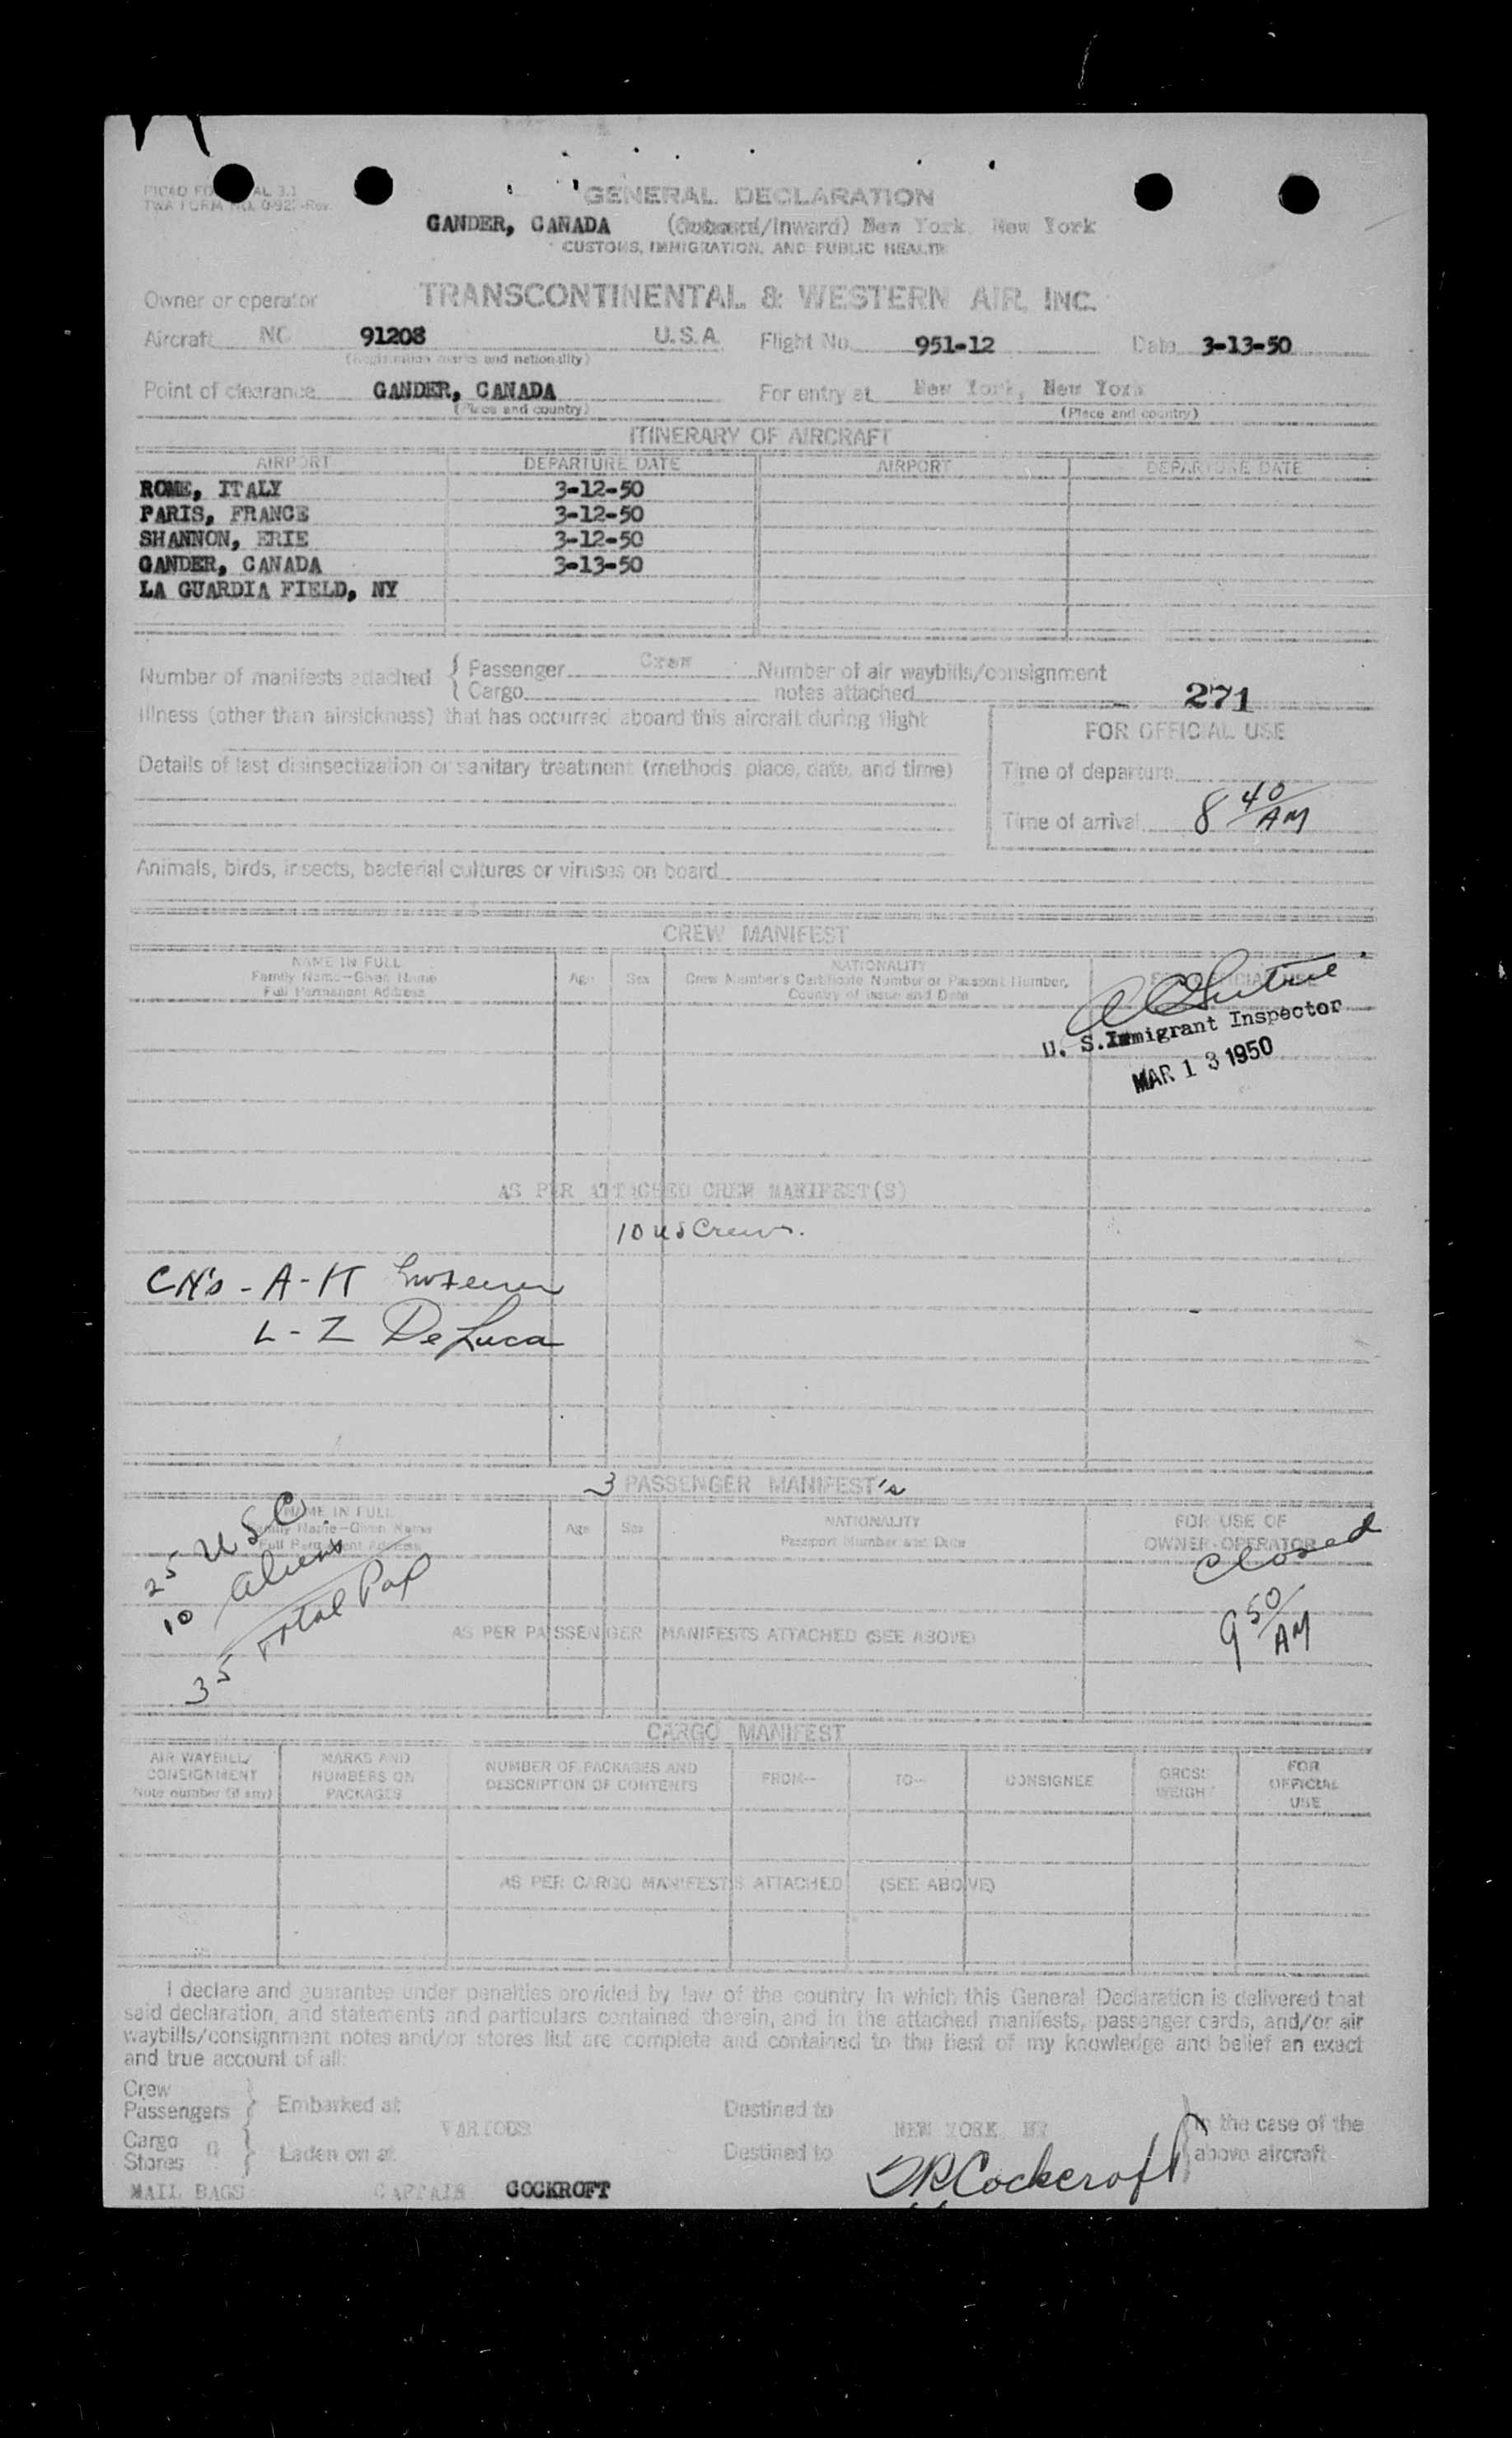 GENERAL DECLARATION
GANDER, CANADA (Outward/Inward) New York, New York
CUSTOMS, IMMIGRATION, AND PUBLIC HEALTH
Owner or operator TRANSCONTINENTAL & WESTERN AIR, INC.
Aircraft NC 91208 U.S.A. Flight No. 951-12 Date 3-13-50
(Registration marks and nationality)
Point of clearance GANDER, CANADA For entry at New York, New York
(Place and country) (Place and country)
ITINERARY OF AIRCRAFT
AIRPORT DEPARTURE DATE AIRPORT DEPARTURE DATE
ROME, ITALY 3-12-50
PARIS, FRANCE 3-12-50
SHANNON, ERIE 3-12-50
GANDER, CANADA 3-13-50
LA GUARDIA FIELD, NY
Number of manifests attached { Passenger Crew Number of air waybills/consignment
{ Cargo notes attached
271
Illness (other than airsickness) that has occurred aboard this aircraft during flight
FOR OFFICIAL USE
Details of last disinsectization or sanitary treatment (methods, place, date, and time)
Time of departure
Time of arrival 8 40/AM
Animals, birds, insects, bacterial cultures or viruses on board
CREW MANIFEST
NAME IN FULL
Family Name—Given Name
Full Permanent Address
Age Sex
NATIONALITY
Crew Member's Certificate Number or Passport Number,
Country of Issue and Date
FOR OFFICIAL USE
U. S. Immigrant Inspector
MAR 13 1950
AS PER ATTACHED CREW MANIFEST(S)
10 US Crew.
CN's - A-K
L-Z DeLuca
3 PASSENGER MANIFEST's
NAME IN FULL
Family Name—Given Name
Full Permanent Address
Age Sex
NATIONALITY
Passport Number and Date
FOR USE OF
OWNER-OPERATOR
25 USC
10 aliens
35 Total Pax
Closed
9 50/AM
AS PER PASSENGER MANIFESTS ATTACHED (SEE ABOVE)
CARGO MANIFEST
AIR WAYBILL/
CONSIGNMENT
Note number (if any)
MARKS AND
NUMBERS ON
PACKAGES
NUMBER OF PACKAGES AND
DESCRIPTION OF CONTENTS
FROM—
TO—
CONSIGNEE
GROSS
WEIGHT
FOR
OFFICIAL
USE
AS PER CARGO MANIFESTS ATTACHED (SEE ABOVE)
I declare and guarantee under penalties provided by law of the country in which this General Declaration is delivered that
said declaration, and statements and particulars contained therein, and in the attached manifests, passenger cards, and/or air
waybills/consignment notes and/or stores list are complete and contained to the best of my knowledge and belief an exact
and true account of all:
Crew
Passengers } Embarked at VARIOUS Destined to NEW YORK, NY in the case of the
Cargo
Stores } Laden on at Destined to above aircraft
MAIL BAGS CAPTAIN COCKROFT